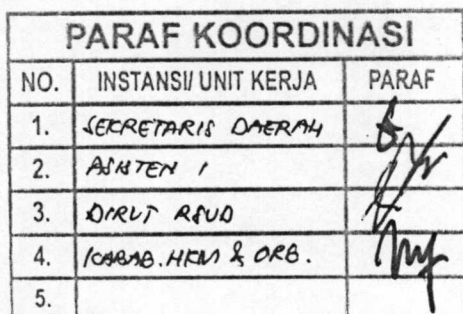 PARAF KOORDINASI
NO. INSTANSI/ UNIT KERJA PARAF
1. SEKRETARIS DAERAH
2. ASISTEN I
3. DIRUT RSUD
4. KABAG. HKM & ORG.
5.